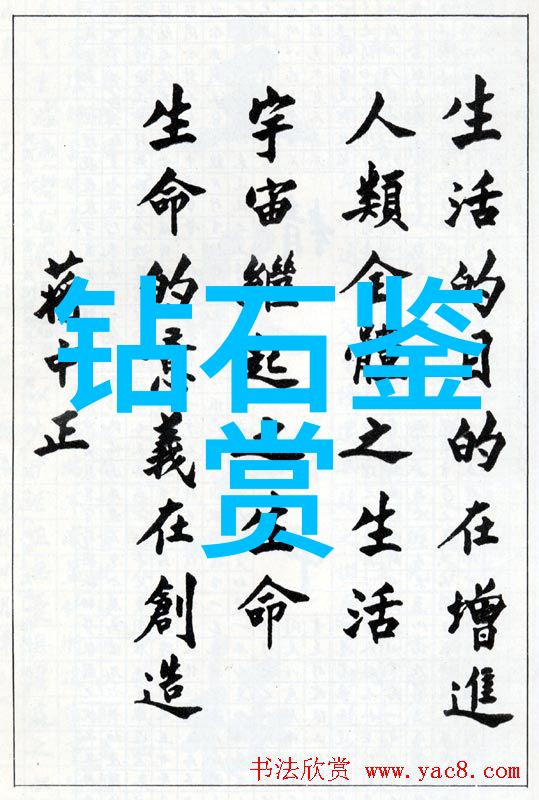 生活的目的在增進
人類全體之生活
宇宙繼起之生命
生命的意義在創造
蔣中正
钻石鉴
赏
书法欣赏 www.yac8.com